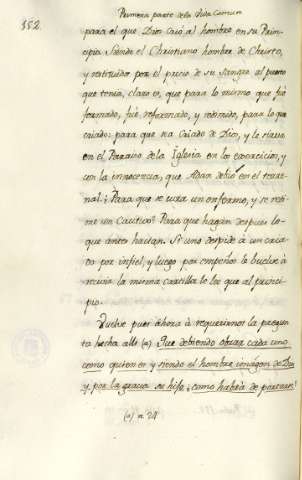 152. Primera parte de la Vida Comun
para el que Dios crió al hombre en su Prin-
cipio. Siendo el Christiano hombre de Christo,
y restituido por el precio de su sangre al puesto
que tenia, claro es, que para lo mismo que fue
formado, fué reformado, y redimido, para lo que
criado: para que
en el Paraiso de la Iglesia en los exercicios, y
con la innocencia, que Adan debió en el terre-
nal. ¿Para que se cura un enfermo, y se redi-
me un Cautivo? Para que hagan despues lo-
que antes hacian. Si uno despide a un cria-
do por infiel, y luego por empeños lo buelve à
recivir la misma cartilla le lee que al princi-
pio.
Vuelve pues ahora à requerirnos la pregun-
ta hecha alli (a) Que debiendo obrar cada uno
como quien es y siendo el hombre imágen de Dios
y por la gracia su hijo ¿como habrá de portarse?
(a) a 24